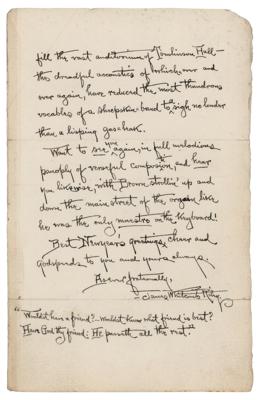 fill the vast auditorium of Tomlinson Hall—
the dreadful acoustics of which, over and
over again, have reduced the most thundrous
vocables of a sheepskin-band to sigh no louder
than a lisping gas-leak.
Want to see you again, in full melodious
panoply of versefull composition, and hear
you likewise, with Brown strollin' up and
down the main street of the organ like
he was the only maestro on the keyboard!
But New-year's greetings, cheer and
Godspeeds to you and yours always.
As ever fraternally,
James Whitcomb Riley.
"Wouldst have a friend?—Wouldst know what friend is best?
Have God thy friend: He passeth all the rest."